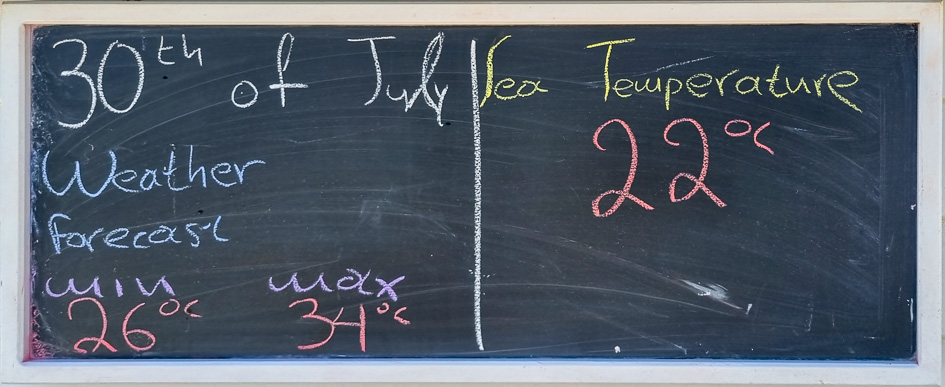 30th of July
Weather
forecast
min max
26°c 34°c
Sea Temperature
22°c